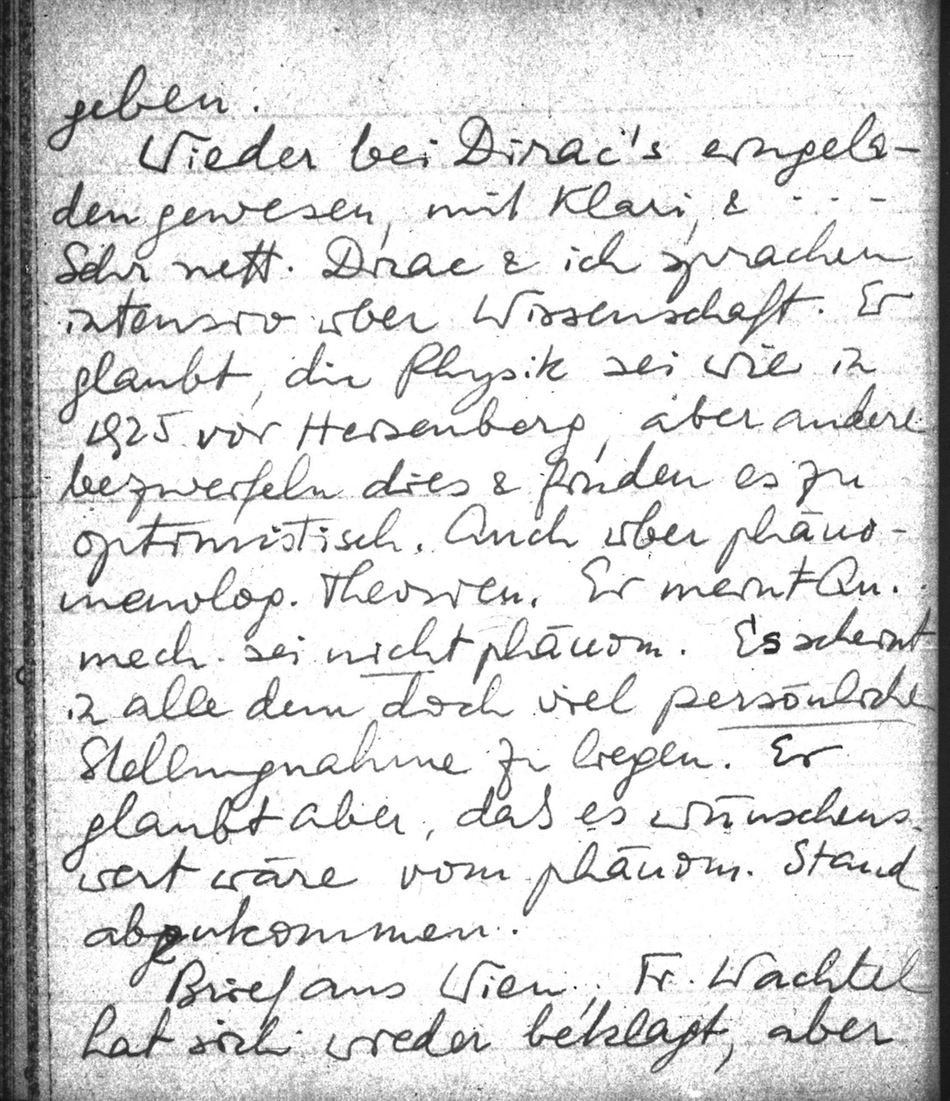 geben.
Wieder bei Dirac's eingela-
den gewesen, mit Klari, & - - -
Sehr nett. Dirac & ich sprachen
intensiv über Wissenschaft. Er
glaubt, die Physik sei wie in
1925 vor Heisenberg, aber andere
bezweifeln dies & finden es zu
optimistisch. Auch über phäno-
menolog. Theorien. Er meint Qu.
mech. sei nicht phänom. Es scheint
in alle dem doch viel persönliche
Stellungnahme zu liegen. Er
glaubt aber, daß es wünschens-
wert wäre vom phänom. Stand
abzukommen.
Brief aus Wien. Fr. Wachtel
hat sich wieder beklagt, aber